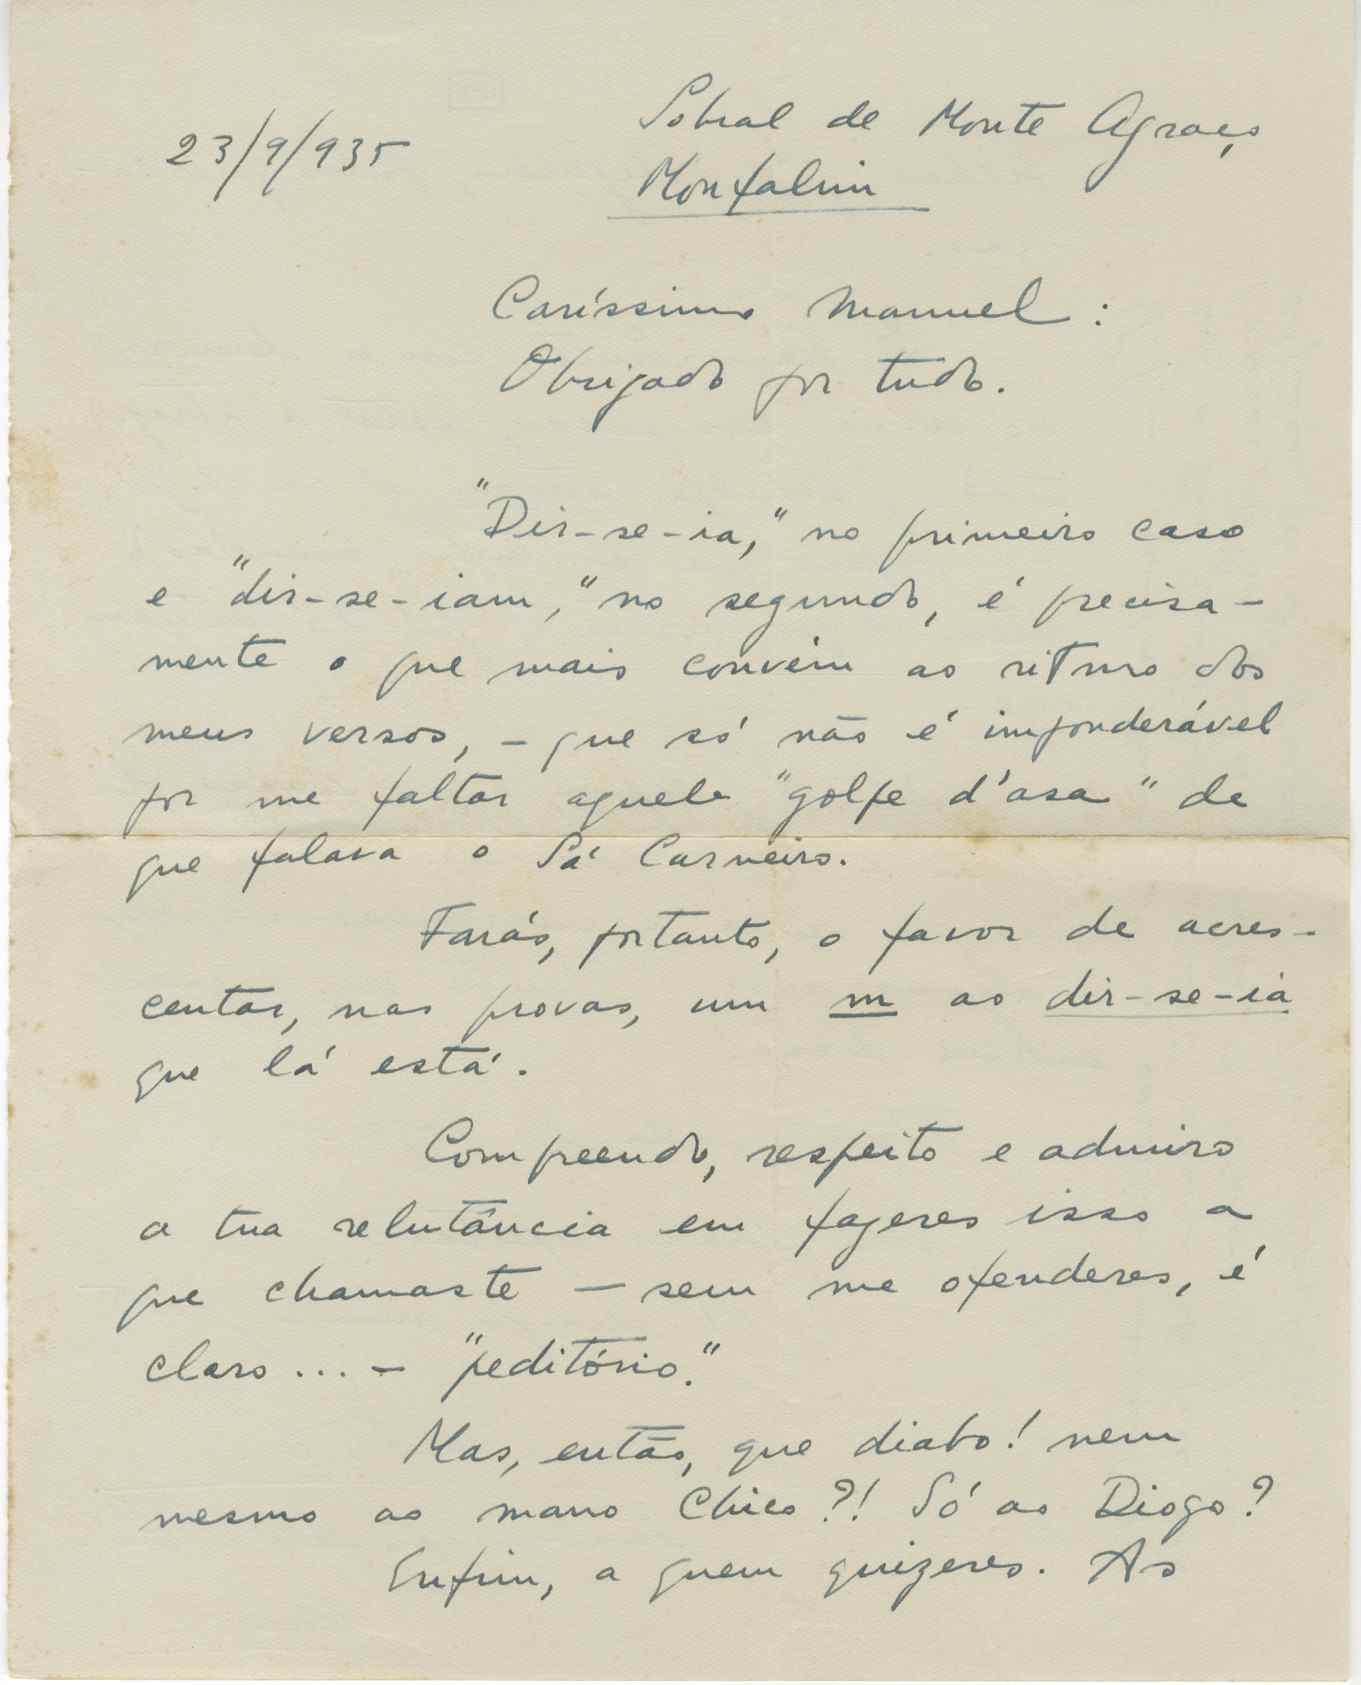 23/9/935
Sobral de Monte Agraço
Monfalim
Caríssimo Manuel :
Obrigado por tudo.
"Dir-se-ia," no primeiro caso
e "dir-se-iam," no segundo, é precisa-
mente o que mais convém ao ritmo dos
meus versos, – que só não é imponderável
por me faltar aquele "golpe d'asa" de
que falava o Sá Carneiro.
Farás, portanto, o favor de acres-
centar, nas provas, um m ao dir-se-ia
que lá está.
Compreendo, respeito e admiro
a tua relutância em fazeres isso a
que chamaste – sem me ofenderes, é
claro... – "peditório."
Mas, então, que diabo! nem
mesmo ao mano Chico?! Só ao Diogo?
Enfim, a quem quizeres. As